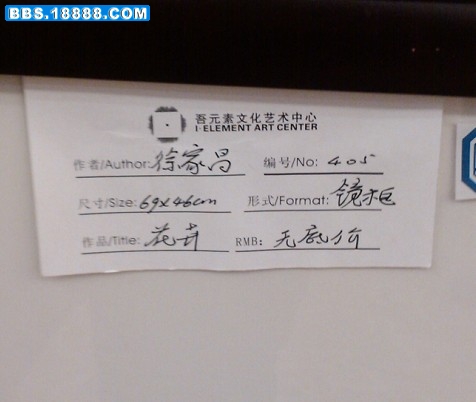 BBS.18888.COM
吾元素文化艺术中心
I·ELEMENT ART CENTER
作者/Author: 徐家昌 编号/No: 405
尺寸/Size: 69x46cm 形式/Format: 镜框
作品/Title: 花卉 RMB: 无底价